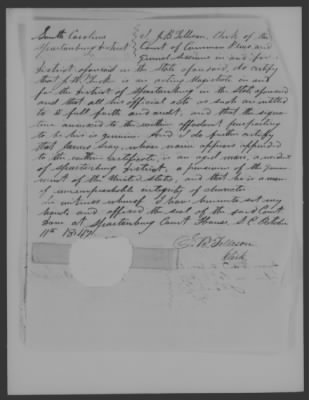 South Carolina } I, J. B. Tolleson, Clerk of the
Spartanburg District } Court of Common Pleas and
General Sessions in and for
District aforesaid in the State aforesaid, do certify
that J. W. is an acting Magistrate in and
for the District of Spartanburg in the State aforesaid
and that all his official acts as such are entitled
to full faith and credit, and that the signa
ture annexed to the within affidavit purporting
to be his is genuine. And I do further certify
that James whose name appears appended
to the within Certificate, is an aged man, a resident
of Spartanburg District, a pensioner of the Govern
ment of the United States, and that he is a man
of unimpeachable integrity of character
In witness whereof I have hereunto set my
hand, and affixed the seal of the said Court
Done at Spartanburg Court House, S. C.
11th
J. B. Tolleson
Clerk